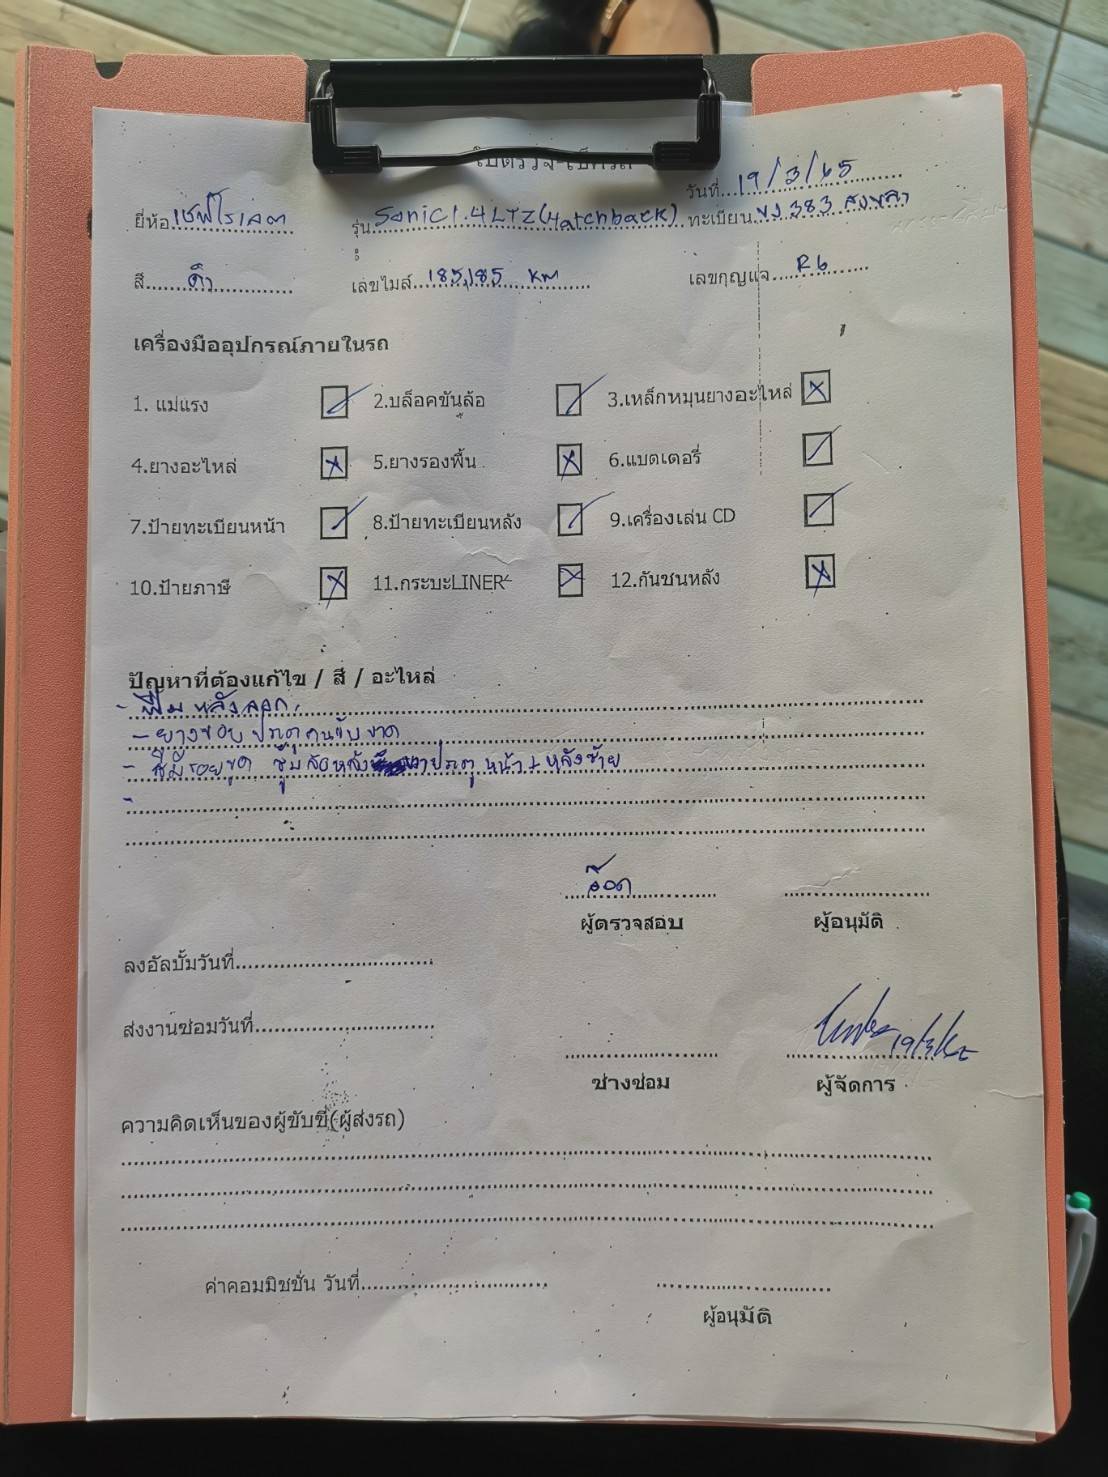 ใบตรวจ-เช็ครถ
วันที่ 19/3/65
ยี่ห้อ เชฟโรเลต รุ่น Sonic 1.4 LTZ (Hatchback) ทะเบียน ขง 383 สงขลา
สี ดำ เลขไมล์ 185,185 KM เลขกุญแจ R6
เครื่องมืออุปกรณ์ภายในรถ
1. แม่แรง 2.บล็อคขันล้อ 3.เหล็กหมุนยางอะไหล่
4.ยางอะไหล่ 5.ยางรองพื้น 6.แบตเตอรี่
7.ป้ายทะเบียนหน้า 8.ป้ายทะเบียนหลัง 9.เครื่องเล่น CD
10.ป้ายภาษี 11.กระบะLINER 12.กันชนหลัง
ปัญหาที่ต้องแก้ไข / สี / อะไหล่
- ฟิมหลังลอก
- ยางขอบประตูคนขับขาด
- สีมีรอยขูด ซุ้มล้อหลัง ประตู หน้า + หลังซ้าย
อ๊อด
ผู้ตรวจสอบ ผู้อนุมัติ
ลงอัลบั้มวันที่
ส่งงานซ่อมวันที่
19/3/65
ช่างซ่อม ผู้จัดการ
ความคิดเห็นของผู้ขับขี่(ผู้ส่งรถ)
ค่าคอมมิชชั่น วันที่
ผู้อนุมัติ